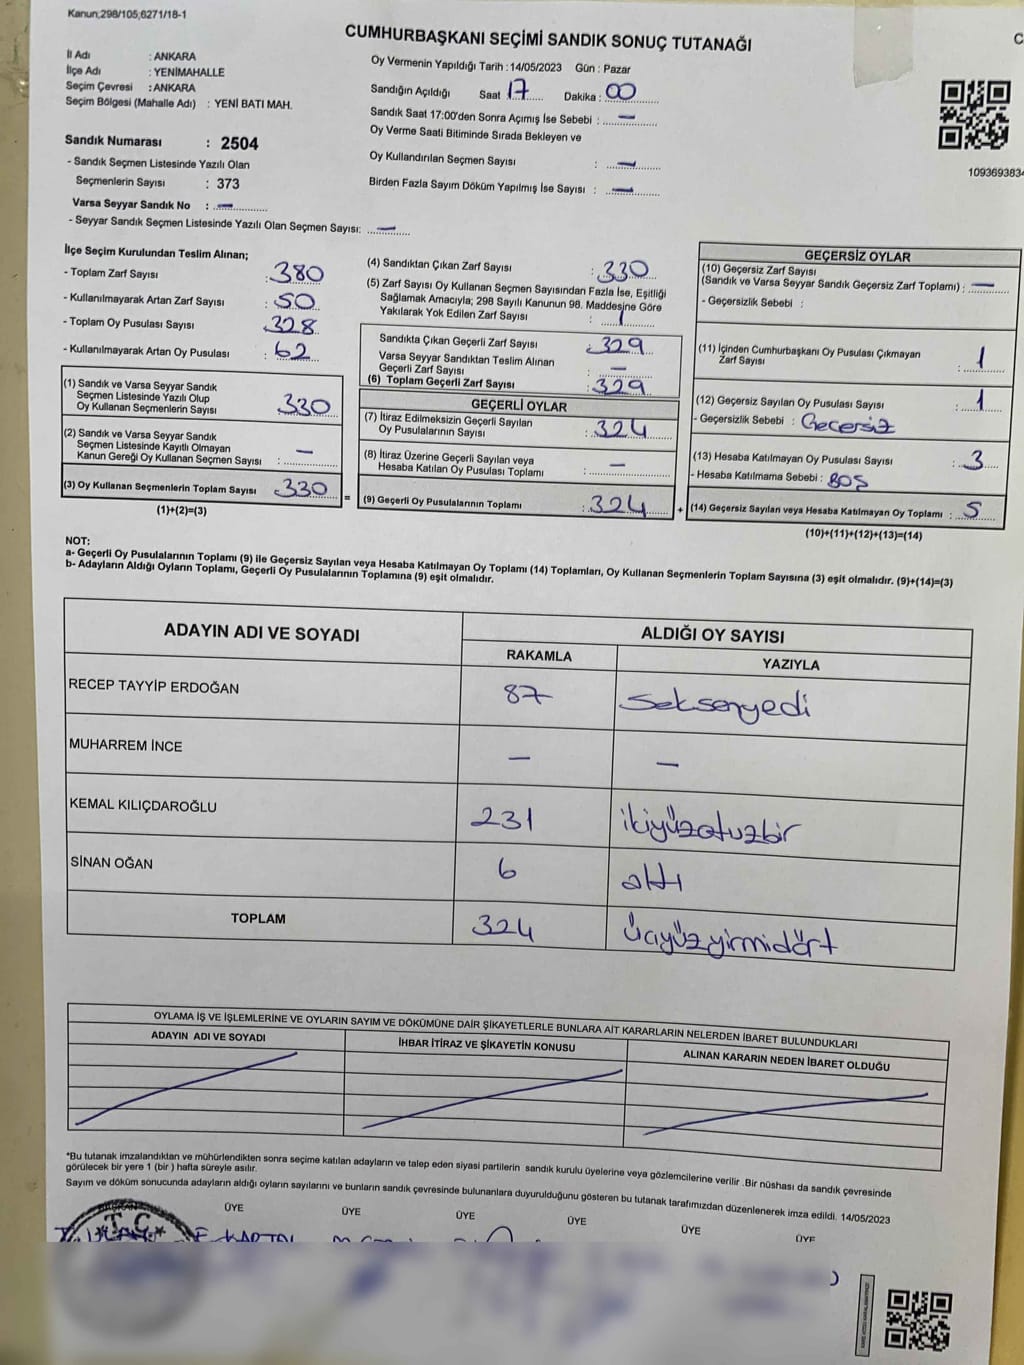 Kanun;298/105,6271/18-1
CUMHURBAŞKANI SEÇİMİ SANDIK SONUÇ TUTANAĞI
C
İl Adı : ANKARA
İlçe Adı : YENİMAHALLE
Seçim Çevresi : ANKARA
Seçim Bölgesi (Mahalle Adı) : YENİ BATI MAH.
Oy Vermenin Yapıldığı Tarih : 14/05/2023 Gün : Pazar
Sandığın Açıldığı Saat 17 Dakika : 00
Sandık Saat 17:00'den Sonra Açımış İse Sebebi : —
Oy Verme Saati Bitiminde Sırada Bekleyen ve
Oy Kullandırılan Seçmen Sayısı : —
Birden Fazla Sayım Döküm Yapılmış İse Sayısı : —
109369383
Sandık Numarası : 2504
- Sandık Seçmen Listesinde Yazılı Olan
Seçmenlerin Sayısı : 373
Varsa Seyyar Sandık No : —
- Seyyar Sandık Seçmen Listesinde Yazılı Olan Seçmen Sayısı: —
İlçe Seçim Kurulundan Teslim Alınan;
- Toplam Zarf Sayısı : 380
- Kullanılmayarak Artan Zarf Sayısı : 50
- Toplam Oy Pusulası Sayısı : 328
- Kullanılmayarak Artan Oy Pusulası : 62
(1) Sandık ve Varsa Seyyar Sandık
Seçmen Listesinde Yazılı Olup
Oy Kullanan Seçmenlerin Sayısı : 330
(2) Sandık ve Varsa Seyyar Sandık
Seçmen Listesinde Kayıtlı Olmayan
Kanun Gereği Oy Kullanan Seçmen Sayısı : —
(3) Oy Kullanan Seçmenlerin Toplam Sayısı : 330
(1)+(2)=(3)
=
(4) Sandıktan Çıkan Zarf Sayısı : 330
(5) Zarf Sayısı Oy Kullanan Seçmen Sayısından Fazla İse, Eşitliği
Sağlamak Amacıyla; 298 Sayılı Kanunun 98. Maddesine Göre
Yakılarak Yok Edilen Zarf Sayısı : 1
Sandıkta Çıkan Geçerli Zarf Sayısı : 329
Varsa Seyyar Sandıktan Teslim Alınan
Geçerli Zarf Sayısı : —
(6) Toplam Geçerli Zarf Sayısı : 329
GEÇERLİ OYLAR
(7) İtiraz Edilmeksizin Geçerli Sayılan
Oy Pusulalarının Sayısı : 324
(8) İtiraz Üzerine Geçerli Sayılan veya
Hesaba Katılan Oy Pusulası Toplamı : —
(9) Geçerli Oy Pusulalarının Toplamı : 324
+
GEÇERSİZ OYLAR
(10) Geçersiz Zarf Sayısı
(Sandık ve Varsa Seyyar Sandık Geçersiz Zarf Toplamı) : —
- Geçersizlik Sebebi :
(11) İçinden Cumhurbaşkanı Oy Pusulası Çıkmayan
Zarf Sayısı : 1
(12) Geçersiz Sayılan Oy Pusulası Sayısı : 1
- Geçersizlik Sebebi : Gecersiz
(13) Hesaba Katılmayan Oy Pusulası Sayısı : 3
- Hesaba Katılmama Sebebi : BOŞ
(14) Geçersiz Sayılan veya Hesaba Katılmayan Oy Toplamı : 5
(10)+(11)+(12)+(13)=(14)
NOT:
a- Geçerli Oy Pusulalarının Toplamı (9) ile Geçersiz Sayılan veya Hesaba Katılmayan Oy Toplamı (14) Toplamları, Oy Kullanan Seçmenlerin Toplam Sayısına (3) eşit olmalıdır. (9)+(14)=(3)
b- Adayların Aldığı Oyların Toplamı, Geçerli Oy Pusulalarının Toplamına (9) eşit olmalıdır.
ADAYIN ADI VE SOYADI
ALDIĞI OY SAYISI
RAKAMLA YAZIYLA
RECEP TAYYİP ERDOĞAN 87 Seksenyedi
MUHARREM İNCE — —
KEMAL KILIÇDAROĞLU 231 ikiyüzotuzbir
SİNAN OĞAN 6 altı
TOPLAM 324 Üçyüzyirmidört
OYLAMA İŞ VE İŞLEMLERİNE VE OYLARIN SAYIM VE DÖKÜMÜNE DAİR ŞİKAYETLERLE BUNLARA AİT KARARLARIN NELERDEN İBARET BULUNDUKLARI
ADAYIN ADI VE SOYADI
İHBAR İTİRAZ VE ŞİKAYETİN KONUSU
ALINAN KARARIN NEDEN İBARET OLDUĞU
*Bu tutanak imzalandıktan ve mühürlendikten sonra seçime katılan adayların ve talep eden siyasi partilerin sandık kurulu üyelerine veya gözlemcilerine verilir .Bir nüshası da sandık çevresinde
görülecek bir yere 1 (bir ) hafta süreyle asılır.
Sayım ve döküm sonucunda adayların aldığı oyların sayılarını ve bunların sandık çevresinde bulunanlara duyurulduğunu gösteren bu tutanak tarafımızdan düzenlenerek imza edildi. 14/05/2023
ÜYE ÜYE ÜYE ÜYE ÜYE ÜYE
T.C.